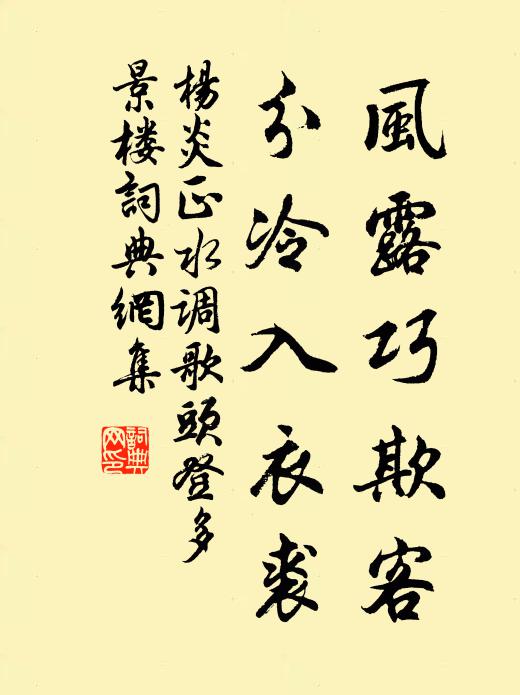 風露巧欺客
分冷入衣裘
楊炎正水调歌頭登多
景楼詞典網集
詞典
网印